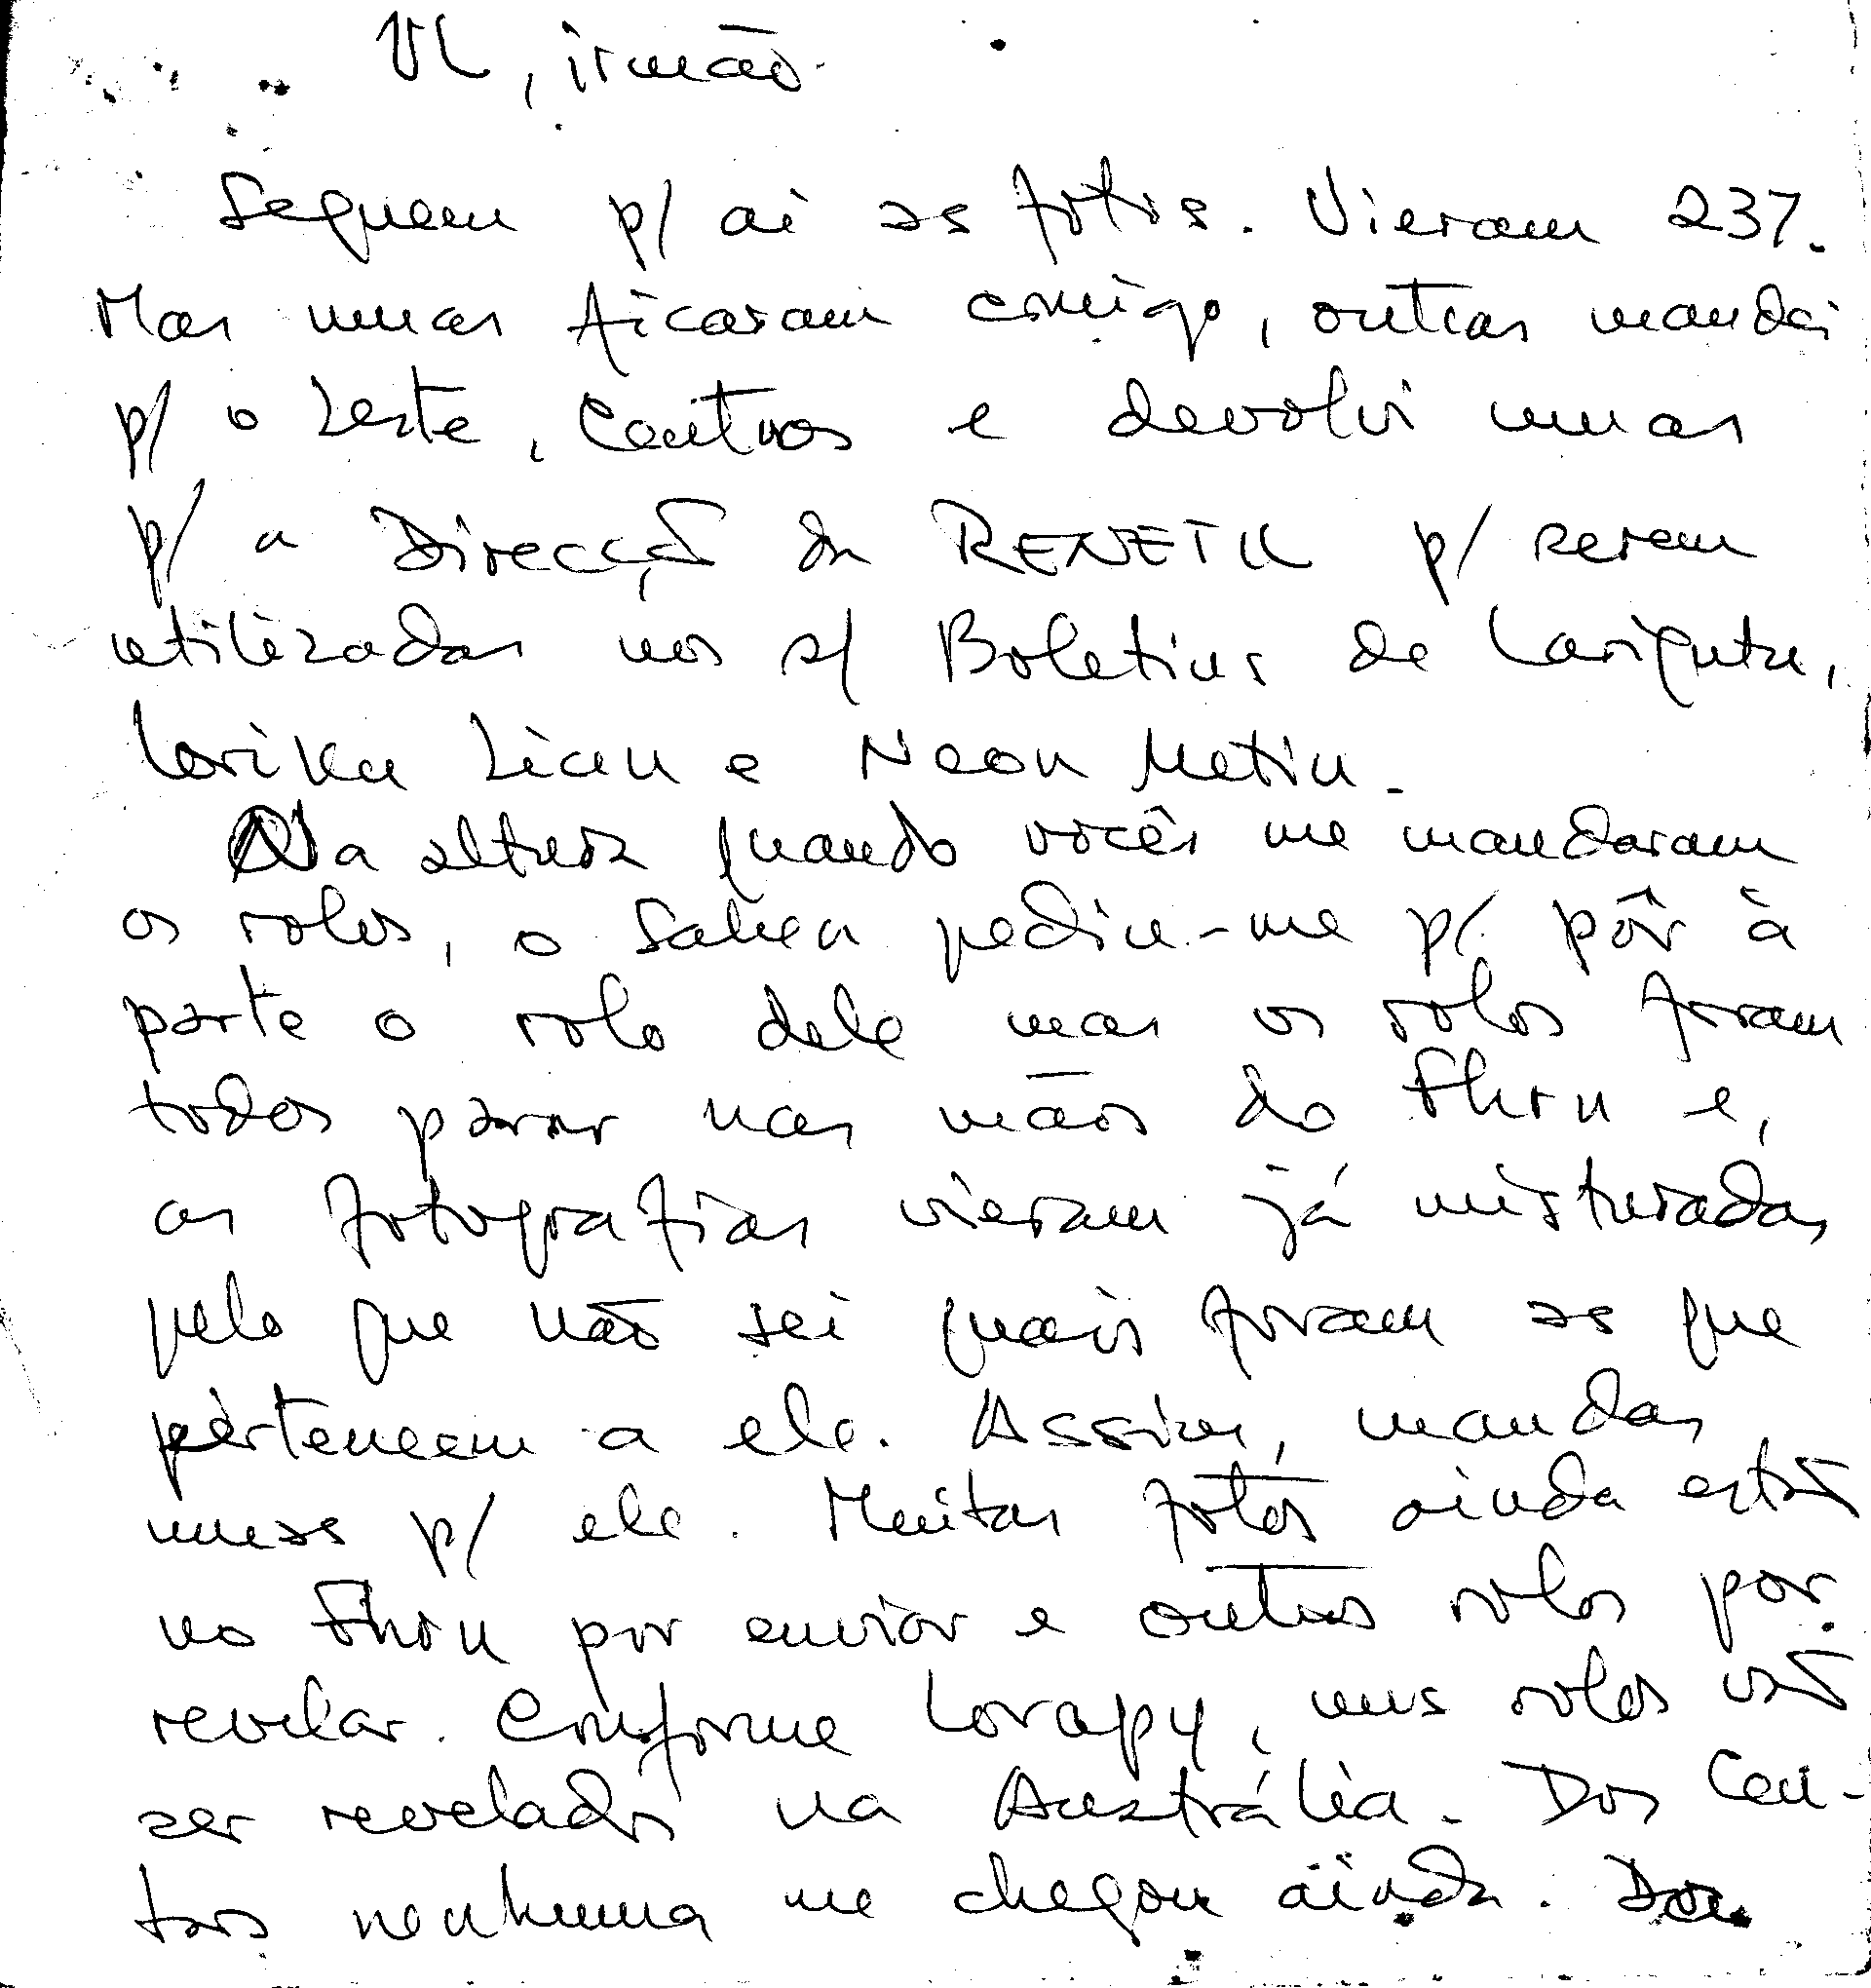 VL, irmão
Seguem p/ aí as fotos. Vieram 237.
Mas umas ficaram comigo, outras mandei
p/ o Leste, Centros e devolvi umas
p/ a Direcção da RENETIL p/ serem
utilizadas nos s/ Boletins de Larigutu,
Loriku Lian e Neon Metin.
Na altura quando vocês me mandaram
os rolos, o pediu-me p/ pôr à
parte o rolo dele mas os rolos foram
todos parar nas mãos do e,
as fotografias vieram já misturadas
pelo que não sei quais foram as que
pertencem a ele. Assim, mandas
umas p/ ele. Muitas fotos ainda estão
no por enviar e outros rolos por
revelar. Conforme Lorapy, uns rolos vão
ser revelados na Austrália. Dos Cen-
tros nenhuma me chegou ainda. Dou